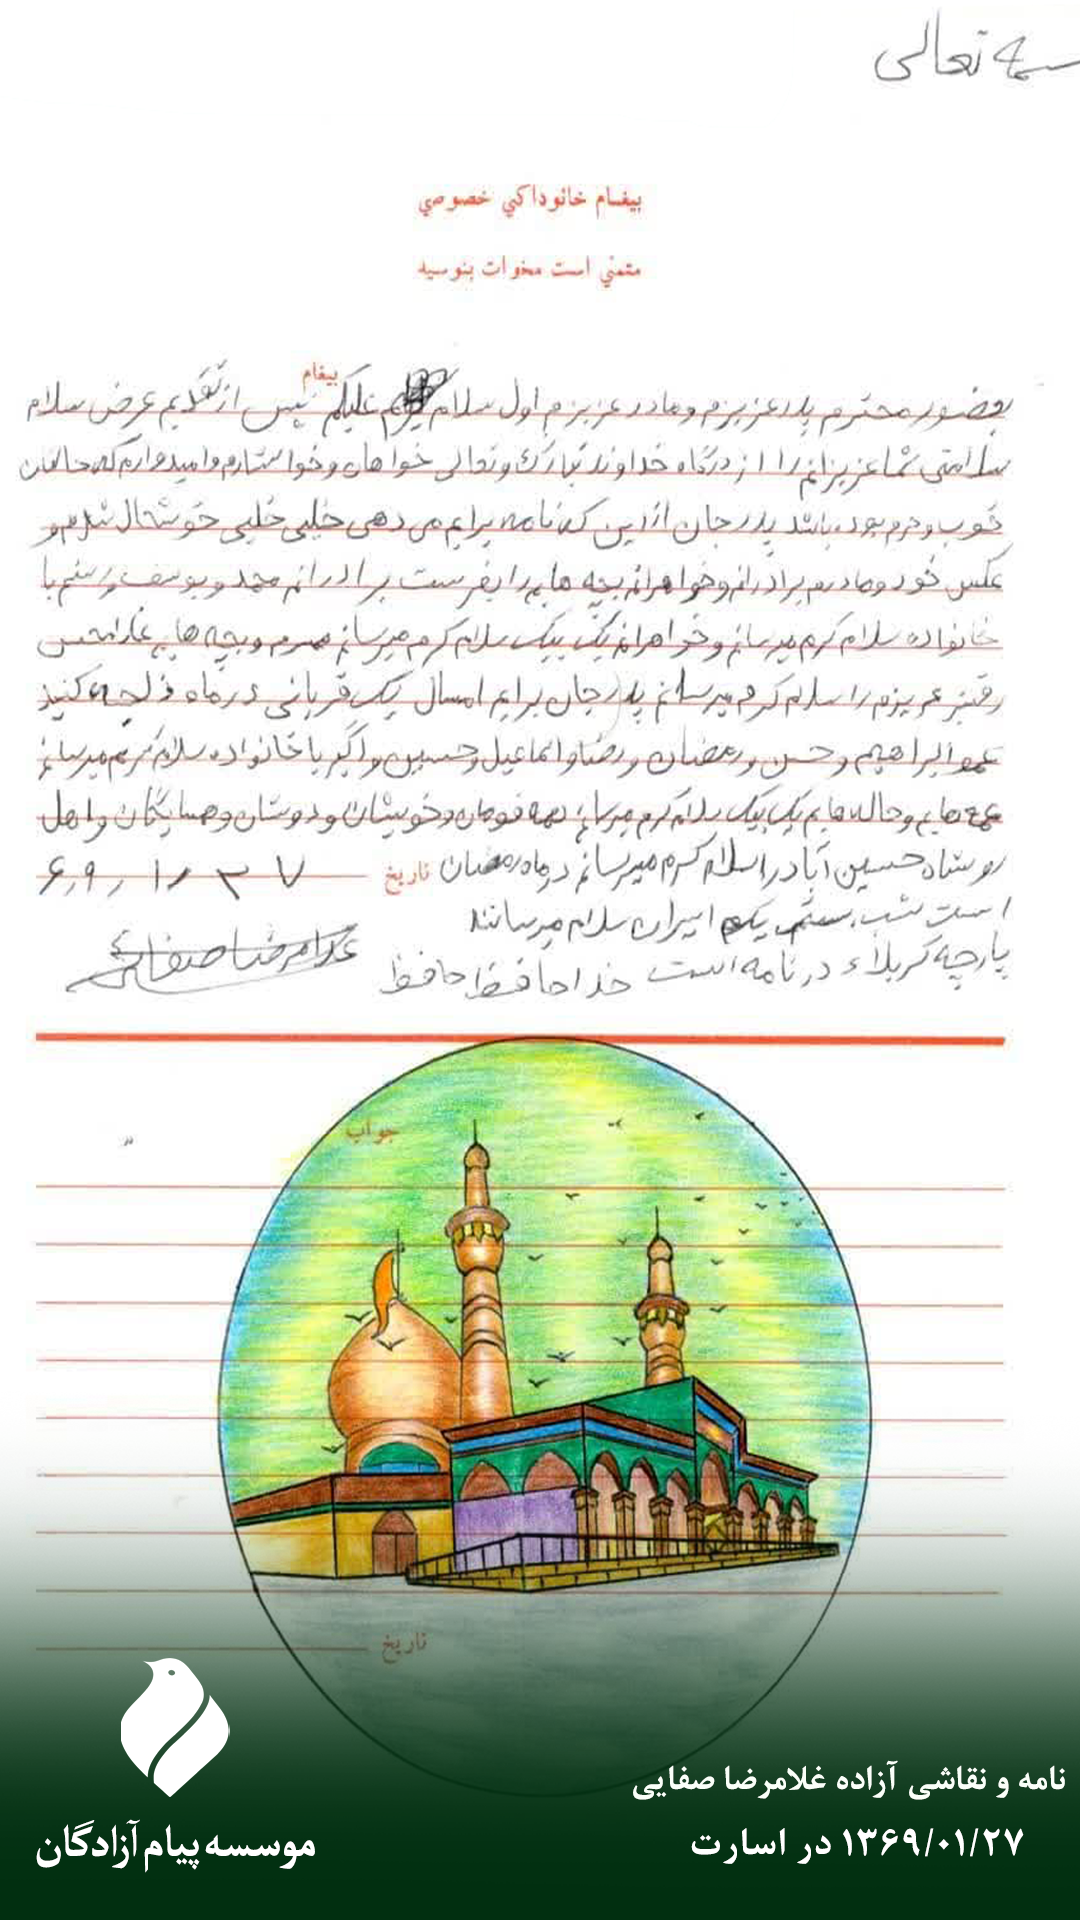 بسمه تعالی
بیغام خانوداکي خصوصي
متمني است مخوات بنوسیه
بیغام
بحضور محترم پدر عزیزم و مادر عزیزم اول سلام علیکم پس از تقدیم عرض سلام
سلامتی شما عزیزانم را از درگاه خداوند تبارک و تعالی خواهان و خواستارم و امیدوارم که حالتان
خوب و خرم بوده باشد پدر جان از این که نامه برایم می دهی خیلی خیلی خوشحال شدم و
عکس خود و مادرم برادرانم و خواهرانم بچه هایم را بفرست برادرانم محمد و یوسف و رستم با
خانواده سلام گرم میرسانم و خواهرانم یک بیک سلام گرم میرسانم همسرم و بچه هایم
عزیزم را سلام گرم میرسانم پدر جان برایم امسال یک قربانی در ماه ذلحجه کنید
عمو ابراهیم و حسن و رمضان و رضا و اسماعیل و حسین و اکبر با خانواده سلام گرم میرسانم
عمه هایم و خاله هایم یک بیک سلام گرم میرسانم همه قومان و خویشان و دوستان و همسایگان و اهل
روستاه حسین آباد را سلام گرم میرسانم در ماه رمضان
تاریخ ۶۹،۱،۲۷
است شب بیستم اسیران سلام میرسانند
پارچه کربلاء در نامه است خداحافظ حافظ
غلامرضا صفائی
جواب
تاریخ
نامه و نقاشی آزاده غلامرضا صفایی
۱۳۶۹/۰۱/۲۷ در اسارت
موسسه پیام آزادگان